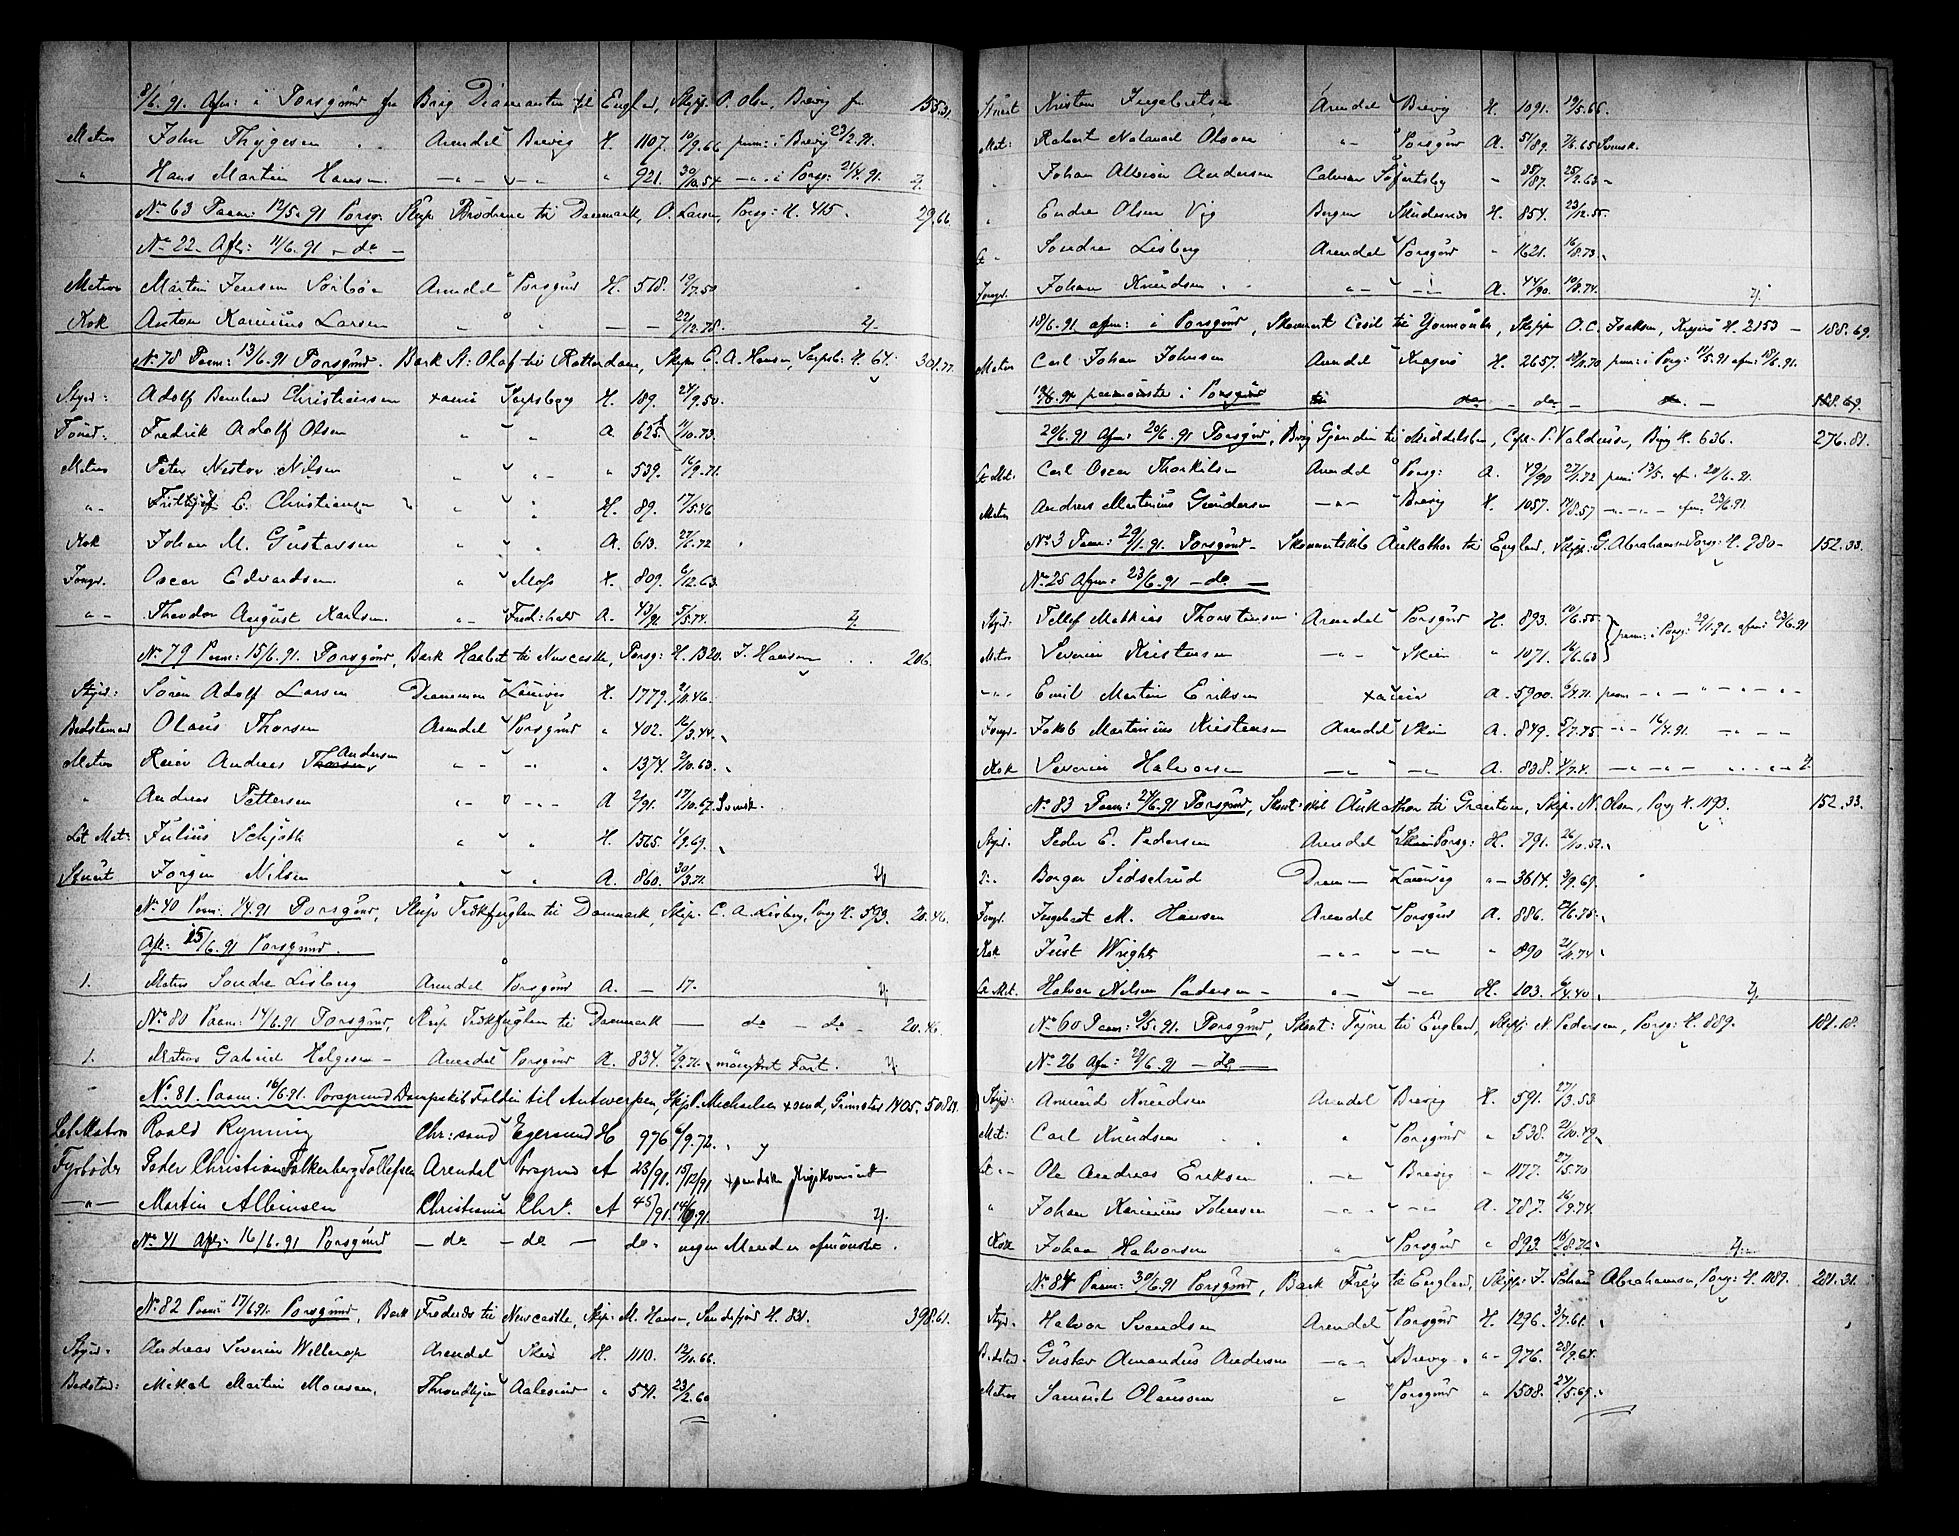 8/6. 91. Afm: i Porsgrund fra Brig Diamanten til England, Skipp. O. Olsen, Brevig fr 155.31.
Matros John Thygesen Arendal Brevig H. 1107. 10/9.66 paam: i Brevig 23/2.91.
" Hans Martin Hansen -"- -"- " 921. 30/10.54 -"- i Porsg: 21/4.91.
No 63 Paam: 12/5.91 Porsg: Skip Brødrene til Danmark, O. Larsen, Porsg: H. 415. 29.66.
No 22. Afm: 11/6.91 - do -
Matros Martin Jensen Arendal Porsgrund H. 518. 19/7.50
Kok Anton Karinius Larsen " " — — 22/12.78.
No 78 Paam: 13/6.91 Porsgrund. Bark St: Olaf til Rotterdam, Skip. C. A. Hansen, Sarpsb: H. 64. 301.77
Styrd: Adolf Bernhard Christiansen Sarpsborg H. 189. 24/9.50.
Tømd: Fredrik Adolf Olsen " " A. 625. 11/10.73.
Matros Peter Nestor Nilsen " " " 539. 16/9.71.
"- Frithjof E. Christiansen " " H. 89. 17/5.46
Kok Johan M. Gustavsen " " A. 613. 27/6.72
Jungd. Oscar Edvardsen " Moss H. 809. 6/12.63.
"- Theodor August Karlsen " Fred:hald A. 43/91 5/5.74.
No 79 Paam: 15/6.91. Porsgrund, Bark Harbit til Newcastle, Porsg: H. 1320. J. Hansen 206.
Styrd: Søren Adolf Larsen Drammen Laurvig H. 1779. 9/11.46.
Bådsmand Olaus Thorsen Arendal Porsgrund " 402. 12/3.44.
Matros Reier Andreas Andersen " - " " 1374. 9/10.63.
" Andreas Pettersen "- -"- A 2/91. 17/10.67. Svensk.
Let Mat: Julius Schjøth " " H. 1565. 1/9.69.
Stuert Jørgen Nilsen " " A. 860. 30/3.71.
No 40 Paam: 1/4.91 Porsgrund, Skip Trækfuglen til Danmark, Skip. C. A. Lisberg, Porsg H. 593. 20.46.
Afm: 15/6.91 Porsgrund.
1. Matros Sondre Lisberg Arendal Porsgrund A. — 17.
No 80 Paam: 14/6.91 Porsgrund, Skip Trækfuglen til Danmark — do — do — 20.46.
1. Matros Gabriel Helgesen - Arendal Porsgrund A. 834. 7/9.76. Fart.
No. 81. Paam. 16/6.91. Porsgrund Dampskib Foldin til Antwerpen, Skipp. Michaelsen Grimstad 1405. 508.21
Let Matros Roald Rynning Chr:sand Egersund H 976 6/9.72.
Fyrbøder Peder Christian Falkenberg Tollefsen Arendal Porsgrund A 23/91. 15/12/91
—"— Martin Albinsen Christiania Chr. A 45/91. 14/6.91.
No 41 Afm: 16/6.91 Porsgrund — do — do — do - ingen Mand er afmønstr.
No. 82 Paam: 17/6.91. Porsgrund, Bark Frederik til Newcastle, Skip: M. Hansen, Sandefjord H. 831. 398.61.
Styrd: Andreas Severin Wellerop Arendal Skien H. 1110. 12/10.66.
Bådsmd: Mikal Martin Monsen. Throndhjem Aalesund " 541. 23/2.60
Stuert Kristen Ingebretsen Arendal Brevig H. 1091. 19/5.66.
Mat: Robert Natanael Olsson "- Porsgrund A. 51/89. 7/6.65 Svensk.
" Johan Albion Andersen Calmar " 35/87. 25/2.63
" Endre Olsen Vig Bergen Skudesnes H. 854. 23/12.55.
Lt - Sondre Lisberg Arendal Porsgrund " 1621. 16/8.73.
Jungd. Johan Knudsen "- -"- A. 44/90. 10/8.74.
18/6.91 afm: i Porsgrund, Skonnert Cecil til Yarmouth, Skipper O. C. Isaksen, Kragerø H. 2153 — 188.69.
Matros Carl Johan Johnsen Arendal Kragerø H. 2657. 18/11.70 paam: i Porsg: 11/5.91 afm: 18/6.91.
19/6.91 paamønster i Porsgrund til do - do - do. - 188.69.
20/6.91 Afm: 20/6.91 Porsgrund, Brig Gjendin til Middelsbro, Capt. P. Valdersen, Brevig H. 636. 276.81.
Lt Mt. Carl Oscar Thorkilsen Arendal Porsg: A. 49/90 27/1.72 paam 13/5. af. 20/6.91.
Matros Andreas Martinius Gundersen —"— Brevig H. 1057. 14/8.57 -"-"- - afm. 23/6.91.
No 3 Paam: 29/1.91. Porsgrund - Skonnertskib Aukathor til England, Skipp: G. Abrahamsen Porsg: H. 980 - 152.33.
No 25 Afm: 23/6.91 - do -
Styrd. Tellef Mathias Thorstensen Arendal Porsgrund H. 893. 10/6.55. paam: i Porsg: 29/1.91. afm: 23/6.91
Matros Severin Kristensen —"- Skien " 1071. 16/6.63
-"- Emil Martin Eriksen A. 5900. 6/4.71. paam - " - " - " -
Jungd. Jakob Martinius Kristensen Arendal Skien A. 849. 5/7.75 -"- 16/4.91. -"- -
Kok Severin Halvorsen —"— —"— A. 838. 4/7.4. —"—"—
No 83 Paam: 24/6.91 Porsgrund, Skonnertskib Aukathor til Granton, Skip. N. Olsen, Porsg H. 1193. 152.33.
Styrd. Peder E. Pedersen Arendal Porsg: H. 791. 26/10.52.
Borgar Sidselrud Dram — Laurvig "- 3614. 3/9.69.
Jungd. Ingebret M. Hansen Arendal Porsgrund A. 886. 21/6.75.
Kok Just Wright —"— —"— " 890 21/11.74
Lt Mat. Halvor Nilsen Pedersen - "— —"— H. 103. 6/4.40.
No 60 Paam: 9/5.91. Porsgrund, Skont: Tyne til England, Skipp: N. Pedersen, Porsg: H. 889. 181.18.
No 26 Afm: 29/6.91 - do —
Styrd: Amund Knudsen Arendal Brevig H. 591. 27/3.53
Mat: Carl Knudsen " Porsgrund " 538. 21/10.49
Lt "- Ole Andreas Eriksen —"- Brevig " 1177. 27/5.70
" Johan Karinius Johnsen —"- -"- A. 787. 16/9.74
Kok Johan Halvorsen " Porsgrund " 893. 16/8.76.
No. 84 Paam: 30/6.91 Porsgrund, Bark Freÿr til England, Skipp: J. Johan Abrahamsen, Porsg: H. 1189. 281.31.
Styrd. Halvor Svendsen Arendal Porsgrund H. 1296. 3/7.61.
Bådsmd. Gustav Amandus Andersen —"- Brevig. "- 976. 28/9.64.
Matros Samuel Olausson " Porsgrund " 1508. 24/5.69.